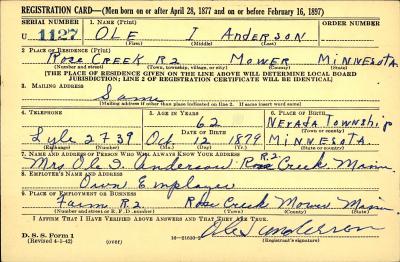 REGISTRATION CARD—(Men born on or after April 28, 1877 and on or before February 16, 1897)
SERIAL NUMBER 1. NAME (Print) ORDER NUMBER
U 1127 OLE I ANDERSON
(First) (Middle) (Last)
2. PLACE OF RESIDENCE (Print)
Rose CREEK R2 MOWER MINNESOTA
(Number and street) (Town, township, village, or city) (County) (State)
[THE PLACE OF RESIDENCE GIVEN ON THE LINE ABOVE WILL DETERMINE LOCAL BOARD
JURISDICTION; LINE 2 OF REGISTRATION CERTIFICATE WILL BE IDENTICAL]
3. MAILING ADDRESS
Same
[Mailing address if other than place indicated on line 2. If same insert word same]
4. TELEPHONE 5. AGE IN YEARS 6. PLACE OF BIRTH
62 NEVADA TOWNSHIP
DATE OF BIRTH (Town or county)
Lyle 27 39 Oct 12 1879 MINNESOTA
(Exchange) (Number) (Mo.) (Day) (Yr.) (State or country)
7. NAME AND ADDRESS OF PERSON WHO WILL ALWAYS KNOW YOUR ADDRESS
Mrs Ole I Anderson R.2. Rose Creek Minn
8. EMPLOYER'S NAME AND ADDRESS
Own Employer
9. PLACE OF EMPLOYMENT OR BUSINESS
Farm R.2 Rose Creek Mower Minn
(Number and street or R. F. D. number) (Town) (County) (State)
I AFFIRM THAT I HAVE VERIFIED ABOVE ANSWERS AND THAT THEY ARE TRUE.
D. S. S. Form 1
(Revised 4-1-42) (over) 16—21630-2 Ole I Anderson
(Registrant's signature)